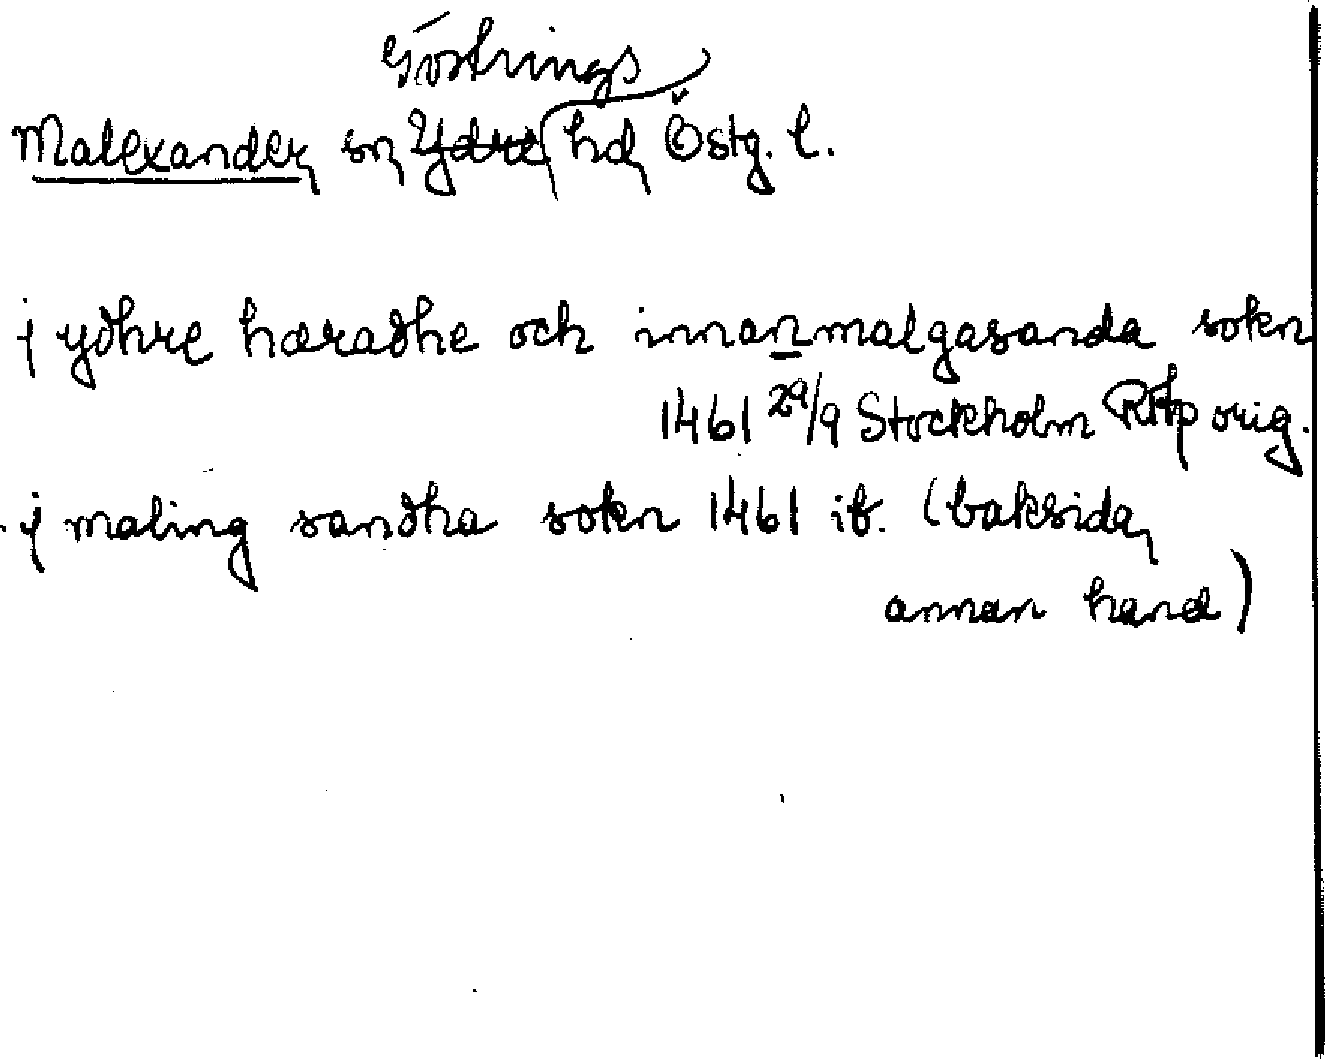 Göstrings
Malexander sn Ydre hd Östg. l.
j ydhre hæradhe och innan malgasanda sokn
1461 29/9 Stockholm RAp orig.
j maling sandha sokn 1461 ib. (baksida,
annan hand)